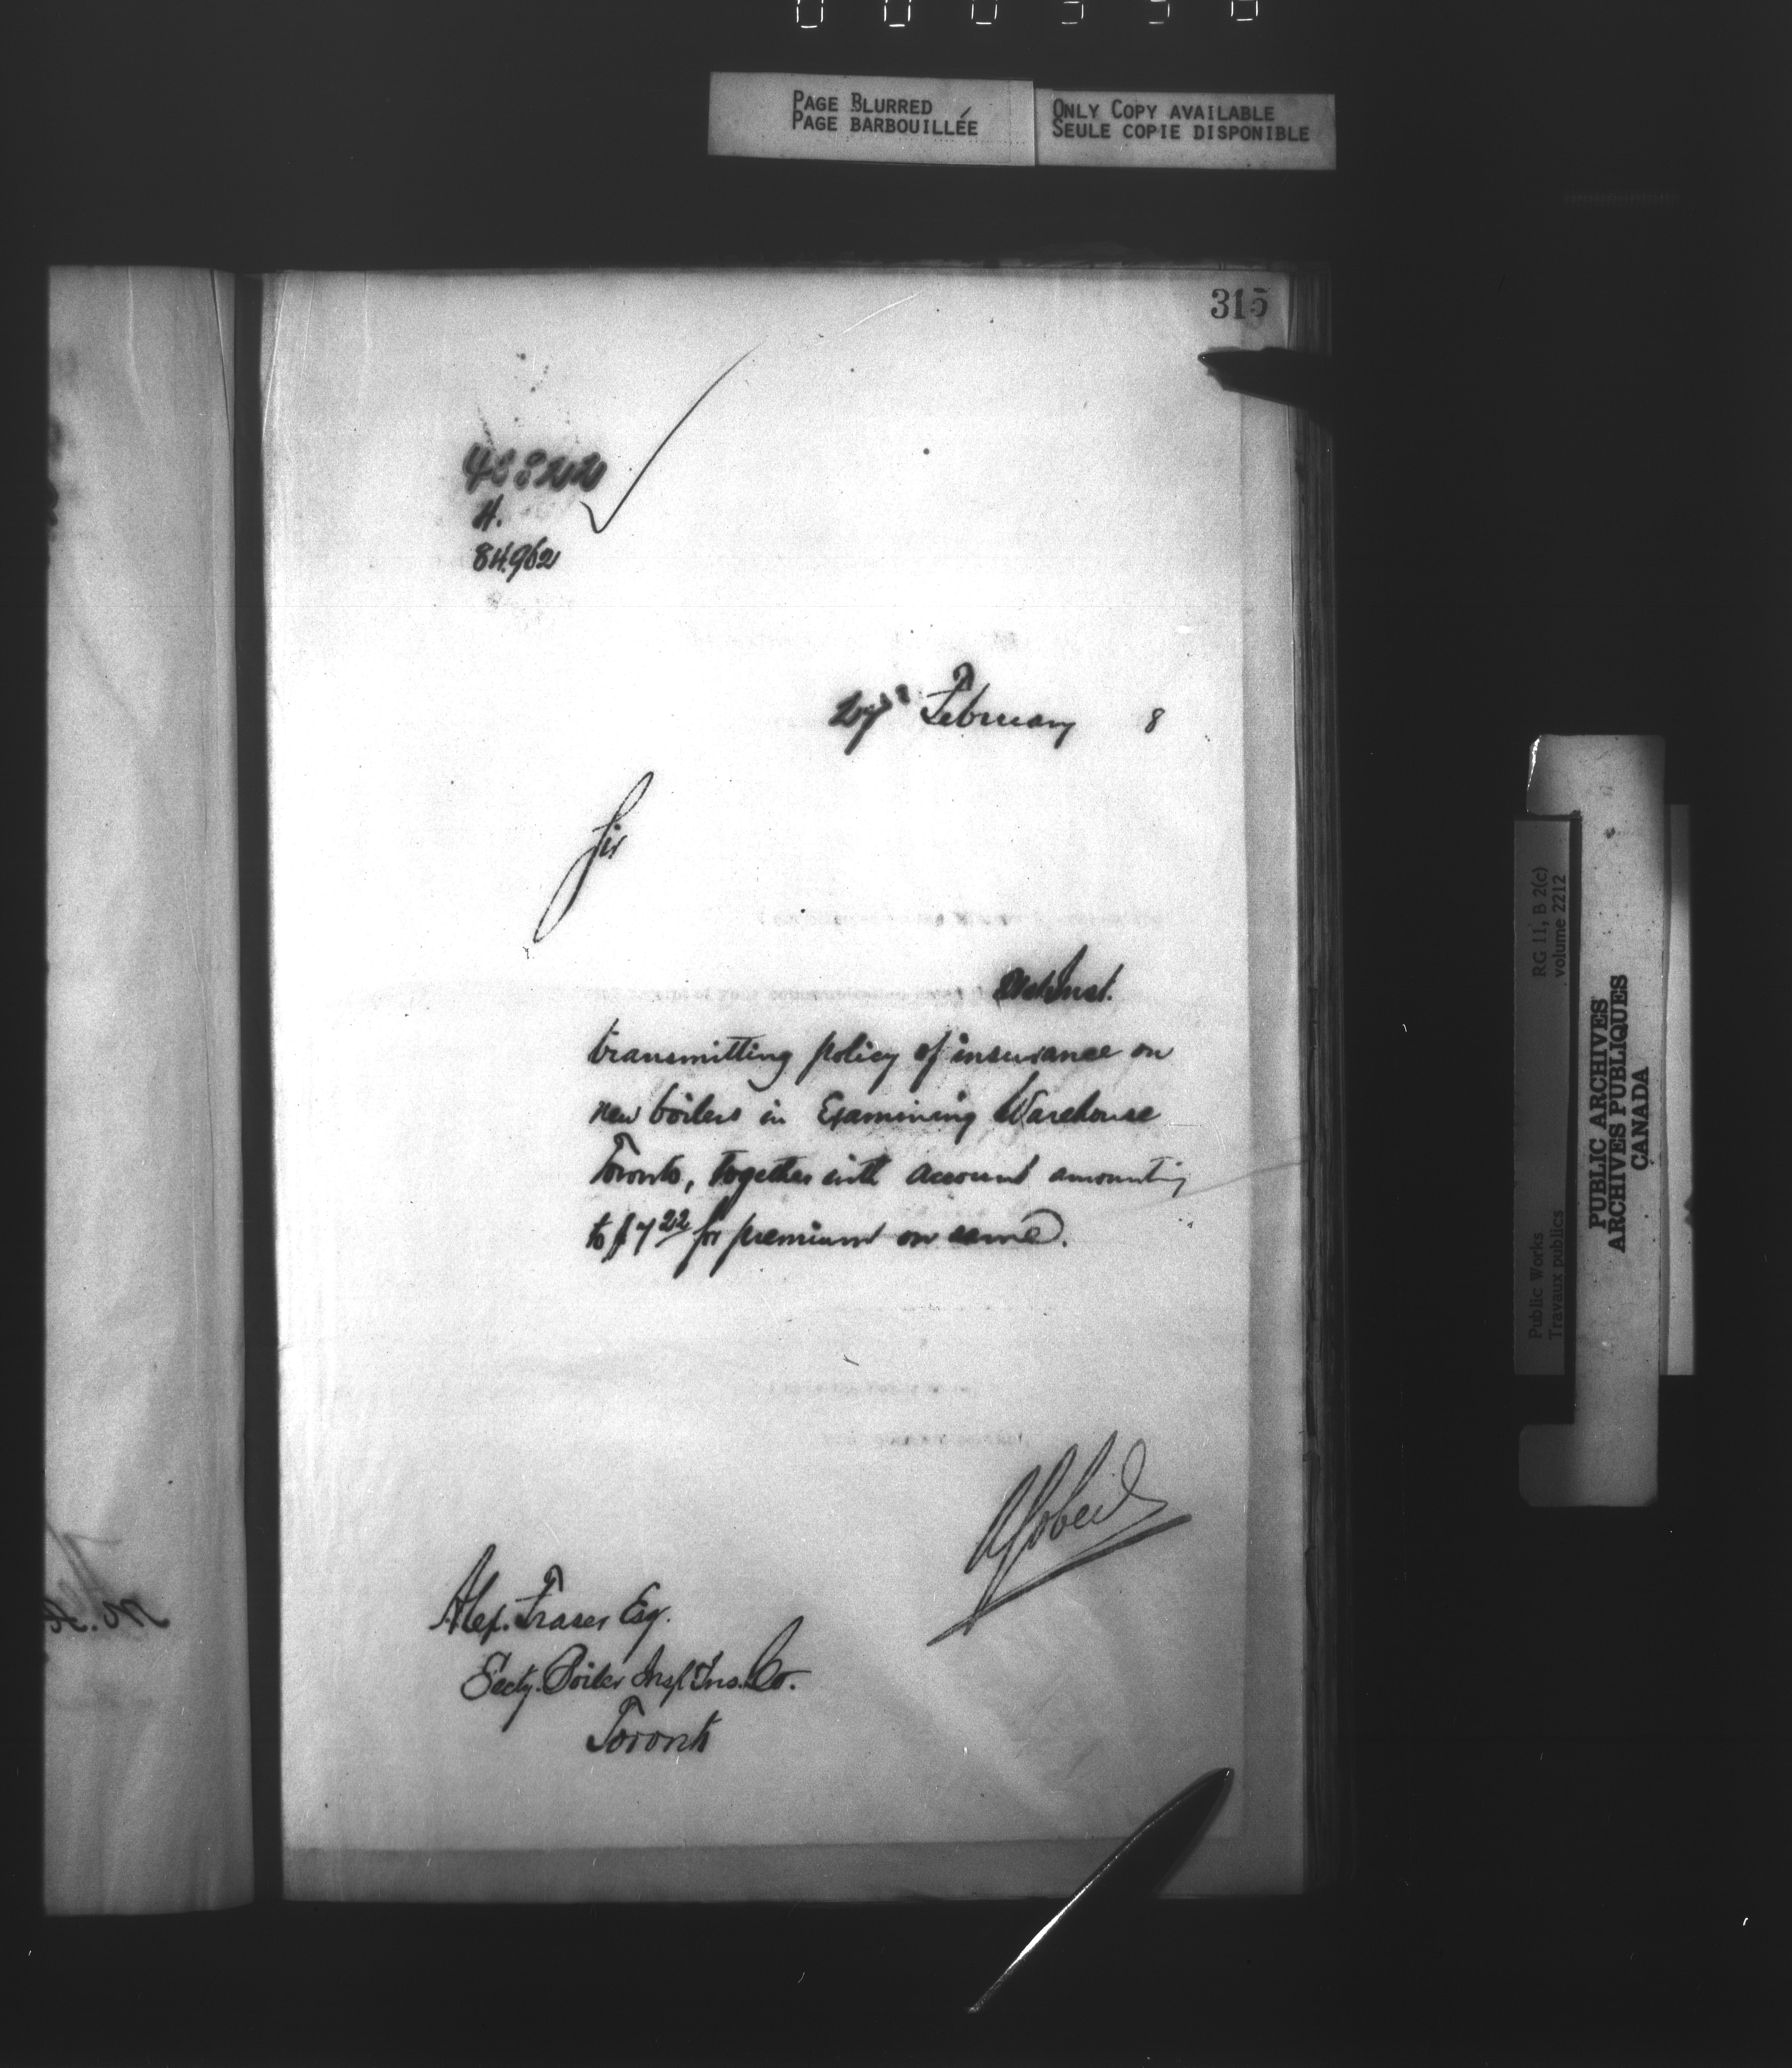 PAGE BLURRED
PAGE BARBOUILLÉE
ONLY COPY AVAILABLE
SEULE COPIE DISPONIBLE
315
4.
84.962
27 February 8
Sir
21st Inst.
transmitting policy of insurance on
new boilers in Examining Warehouse
Toronto, together with account amounting
to $7 22 for premium on same.
AGobeil
Alex. Fraser Esq.
Secty. Boiler Insp. Ins. Co.
Toronto
RG 11, B 2(c)
volume 2212
Public Works
Travaux publics
PUBLIC ARCHIVES
ARCHIVES PUBLIQUES
CANADA